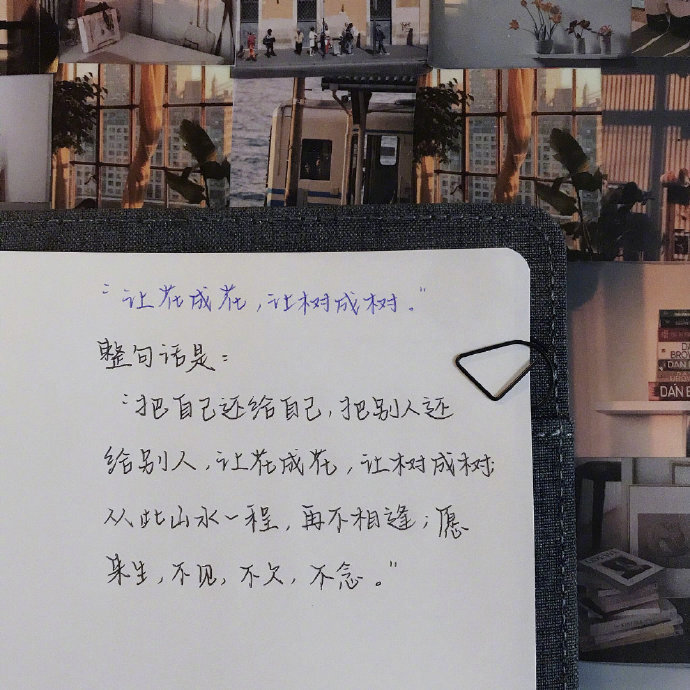 “让花成花,让树成树。”
整句话是:
“把自己还给自己,把别人还
给别人,让花成花,让树成树;
从此山水一程,再不相逢;愿
来生,不见,不欠,不念。”